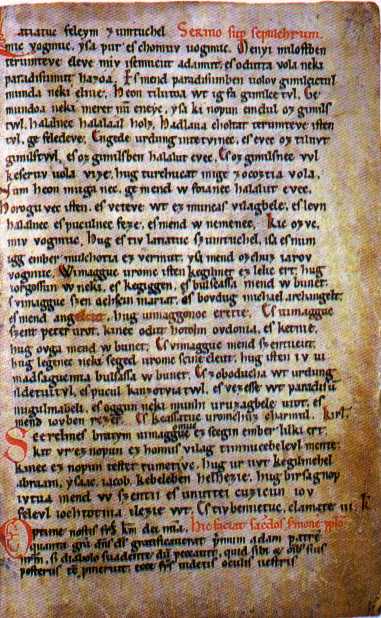 Latiatuc feleym zumtuchel Sermo sup sepulchrum.
mic vogmuc. yſa pur eſ chomuv uogmuc. Menyi miloſtben
terumteve eleve miv iſemucut adamut. eſ odutta vola neki
paradiſumut hazoa. Eſ mend paradiſumben uolov gimilcictul
munda neki elnie. Heon tilutoa wt ig fa gimilce tvl. Ge
mundoa neki meret nū eneyc. yſa ki nopun emdul oz gimilſ
twl. halalnec halalaal holz. Hadlaua choltat terumteve iſten
tvl. ge feledeve. Engede urdung intetvinec. eſ evec oz tiluvt
gimilſtwl. eſ oz gimilſben halalut evec. Eſ oz gimilſnec vvl
keſeruv uola vize. hug turchucat mige zocoztia vola.
Num heon muga nec. ge mend w foianec halalut evec.
Horogu vec iſten. eſ veteve wt ez muncaſ vilagbele. eſ levn
halalnec eſ puculnec feze. eſ mend w nemenec. Kic ozvc.
miv vogmuc. Hug eſ tiv latiatuv ſzumtuchel. iſa eſ num
igg ember mulchotia ez vermut. yſa mend ozchuz iarov
vogmuc. Wimagguc uromc iſten kegilmet ez lelic ert. hug
iorgoſſun w neki. eſ kegiggen. eſ bulſaſſa mend w bunet.
Eſ vimagguc ſzen achſcin mariat. eſ bovdug michael archangelt.
eſ mend angelcut. hug uimaggonoc erette. Eſ uimagguc
ſzent peter urot. kinec odut hotolm ovdonia. eſ ketnie.
hug ovga mend w bunet. Eſ vimagguc mend ſzentucut.
hug legenec neki ſeged uromc ſcine eleut. hug iſten iv ui
madſagucmia bulſaſſa w bunet. Eſ zoboducha wt urdung
ildetuitvl. eſ pucul kinzotviatwl. eſ vezeſſe wt paradiſū
nugulmabeli. eſ oggun neki munhi uruzagbele utot. eſ
mend iovben rezet. Eſ keaſſatuc uromchuz charmul. Kirl.
Scerelmes bratym uimagg omuc ez ſcegin ember lilki ert.
kit vr ez nopun ez homus vilag timnucebelevl mente.
kinec ez nopun teſtet tumetivc. hug ur uvt kegilmehel
abraam. yſaac. iacob. kebeleben helhezie. hug birſagnop
ivtva mend w ſzentii eſ unuttei cuzicun iov
felevl iochtotnia ilezie wt. Eſ tivbennetuc. clamate iii. k.
Hic faciat sacdos smone pplo
quanta gra dns ds gratificauerat primum adam patrē
nrm. si diabolo suadente peccauit. quid sibi oībus suis
posteris ecce frs uidetis oculis uestris